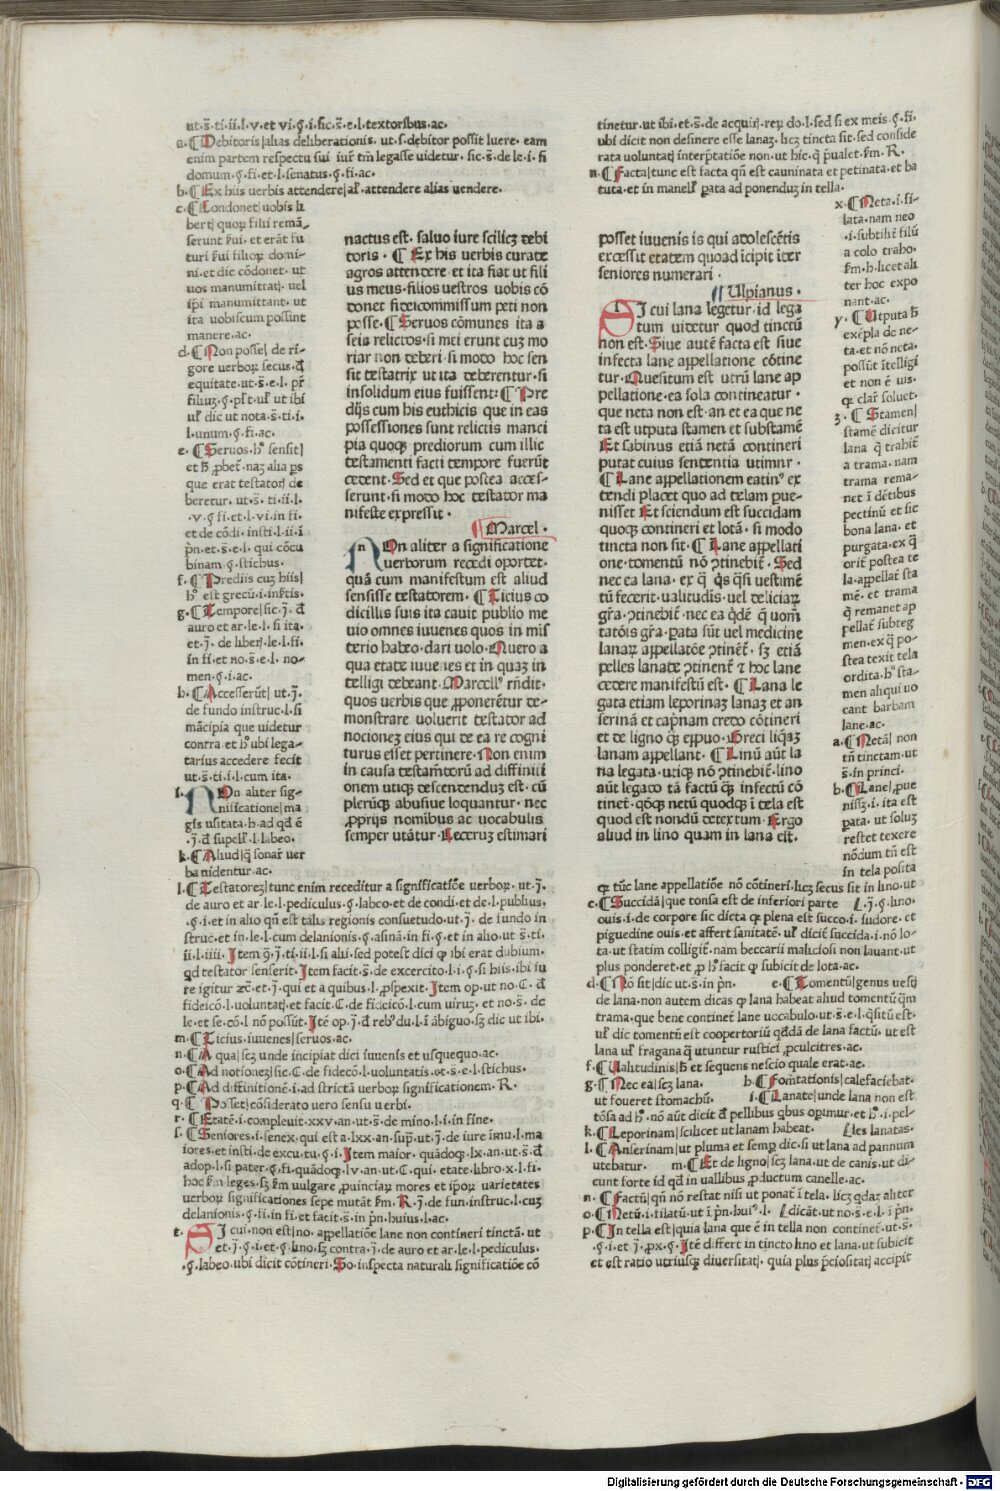 ut.s̄.ti.ii.l.v.et vi.ꝯ.i.sic.s̄.e.l.textoribus.ac.
a.¶Debitoris|alias deliberationis.ut.s.debitor possit luere.eam
enim partem respectu sui iur̄ tm̄ legasse uidetur.sic.s̄.de le.i.si
domum.§.fi.et.l.senatus.§.fi.ac.
b.¶Ex hiis uerbis attendere|al'.attendere alias uendere.
c.¶Condonet|uobis li
berti quorum filii remā
serunt serui.et erāt fu
turi serui filiorum domi
ni.et dic cōdonet.ut
uos manumittatis.uel
ip̄i manumittant.ut
ita uobiscum possint
manere.ac.
d.¶Non posse|de ri
gore uerborum secus.
equitate.ut.s̄.e.l.
ul' dic ut nota.s̄.ti.i.
l.unum.§.fi.ac.
e.¶Seruos.h° sensit|
que erat testatoris de
beretur.ut.s̄.ti.ii.l.
.v.§.fi.et.l.vi.in fi.
et de cōdi.insti.l.ii.i
p̄n.et.s̄.e.l.qui cōcu
binam.§.stichus.
f.¶Prediis cuz hiis|
g.¶Tempore|sic.j.
auro et ar.le.l.si ita.
et.j.de liber.le.l.fi.
in fi.et no.s̄.e.l.no
men.§.i.ac.
h.¶Accesserūt|ut.j.
de fundo instruc.l.si
mācipia que uidetur
contra.et h° ubi lega
tarius accedere fecit
ut.s̄.ti.i.l.cum ita.
i.NOn aliter sig
nificatione|ma
gis usitata.
k.¶Aliud|q̄ sonat uer
ba uidentur.ac.
nactus est.salvo iure scilicz debi
toris.¶Ex his uerbis curate
agros attendere.et ita fiat ut fili
us meus.filios uestros uobis cō
donet fideicōmissum peti non
posse.¶Seruos cōmunes ita a
seia relictos.si mei erunt cuz mo
riar non deberi.si modo hoc sen
sit testatrix ut ita deberentur.si
insolidum eius fuissent:¶Pre
dijs cum his euthicis que in eas
possessiones sunt relictis manci
pia quoqz prediorum cum illic
testamenti facti tempore fuerūt
cedent.Sed et que postea acces
serunt.si modo hoc testator ma
nifeste expressit.
¶Marcel.
NOn aliter a significatione
uerborum recedi oportet.
quā cum manifestum est aliud
sensisse testatorem.¶Ticius co
dicillis suis ita cavit publio me
uio omnes iuuenes quos in mis
terio habeo.dari uolo.Quero a
qua etate iuuenes et in quaz in
telligi debeant.Marcell' rn̄dit.
quos uerbis que ꝓponerētur de
monstrare uoluerit testator ad
nocionez eius qui de ea re cogni
turus esset pertinere.Non enim
in causa testamētorū ad diffiniti
onem utiqz descendenduz est.cū
plerūqz abusiue loquantur.nec
ꝓprijs nomibus ac uocabulis
semper utātur.Ceceruz estimari
l.¶Testatorez|tunc enim receditur a significatiōe uerborum.ut.j.
de auro et ar.le.l.pediculus.§.labeo.et de condi.et de.l.publius.
.§.i.et in alio qn̄ est talis regionis consuetudo.ut.j.de fundo in
struc.et in.le.l.cum delanionis.§.asinā.in fi.§.et in alio.ut s̄.ti.
ii.l.iiii.Item q̄.j.ti.ii.l.si alii.sed potest dici qꝫ ibi erat dubium.
qd testator senserit.Item facit.s̄.de excercito.l.i.§.si hiis.ibi iu
re igitur zc̄.et.j.qui et a quibus.l.ꝓspexit.Item op.ut no.C.
fideicō.l.uoluntatis.et facit.C.de fideicō.l.cum uiruz.et no.s̄.de
le.et se.cō.l nō possūt.Itē op.j. reb'du.l.i ābiguo.sꝫ dic ut ibi.
m.¶Ticius.iuuenes|seruos.ac.
n.¶A qua|scz unde incipiat dici iuuenis et usquequo.ac.
o.¶Ad notionez|sic.C.de fidecō.l.uoluntatis.ot.s̄.e.l.stichus.
p.¶Ad diffinitionē.i.ad strictā uerborum significationem.R.
q.¶Posset|cōsiderato uero sensu uerbi.
r.¶Etatē.i.compleuit.xxv.an.ut.s̄.de mino.l.i.in fine.
s.¶Seniores.i.senex.qui est a.lxx.an.sup.ut.j.de iure īmu.l.ma
iores.et insti.de excu.tu.§.i.Item maior.quādoqz.lx.an.ut.s̄.
adop.l.si pater.§.fi.quādoqz.lv.an.ut.C.qui.etate.libro.x.l.fi.
hoc s'm leges.sꝫ s'm vulgare.ꝓuinciarum mores et ip̄orum uarietates
uerborum significationes sepe mutāt s'm.R.j.de fun.instruc.l.cuz
delanionis.§.fi.in fi.et facit.s̄.in p̄n.huius.l.ac.
t.SI cui.non est|no.appellatiōe lane non contineri tinctā.ut
et.j.§.i.et.§.lino.sꝫ contra.j.de auro et ar.le.l.pediculus.
.§.labeo.ubi dicit cōtineri.So.inspecta naturali significatiōe cō
tinetur.ut ibi.et.s̄.de acquir.rerum do.l.sed si ex meis.§.fi.
ubi dicit non desinere esse lanaz.licz tincta sit.sed conside
rata uoluntatis interp̄tatiōe non.ut hic.q p̄ualet.s'm.R.
u.¶Facta|tunc est facta qn̄ est cauninata et petinata.et ba
tuta.et in manellis parata ad ponenduz in tella.
posset iuuenis is qui adolescētis
excessit etatem quoad īcipit īter
seniores numerari.
¶Ulpianus.
SI cui lana legetur.id lega
tum uidetur quod tinctū
non est.Siue autē facta est siue
infecta lane appellatione cōtine
tur.Quesitum est utrū lane ap
pellatione.ea sola contineatur.
que neta non est.an et ea que ne
ta est utputa stamen et substamē
Et sabinus etiā netā contineri
putat cuius sententia utimur.
¶Lane appellationem eatin' ex
tendi placet quo ad telam pue
nisset Et sciendum est succidam
quoqz contineri et lotā.si modo
tincta non sit.¶Lane appellati
one.tomentū nō ꝯtinebit̄.Sed
nec ea lana.ex q̄ qs q̄si uestimē
tū fecerit.ualitudis.uel deliciarum
gr̄a.ꝯtinebit̄.nec ea qdē q̄ uom̄
tatōis gr̄a.parata sūt uel medicine
lanarum appellatōe ꝯtinēt̄.sꝫ etiā
pelles lanate ꝯtinent̄ & hoc lane
cedere manifestū est.¶Lana le
gata etiam leporinaz lanaz et an
serinā et capnam credo cōtineri
et de ligno qꝫ
lanam appellant.¶Linū aūt la
na legata.utiqz nō ꝯtinebit̄.lino
aūt legato tā factū qꝫ infectū cō
tinet̄.qōqz netū quodqz ī tela est
quod est nondū detextum.Ergo
aliud in lino quam in lana est.
x.¶Neta.i.fi
lata.nam neo
.i.subtilit̄ filū
a colo traho.
s'm.h.licet ali
ter hoc expo
nant.ac.
y.¶Utputa
exēpla de ne
ta.et nō neta.
possūt ītelligi
et non ē uis.
qꝫ clar soluet.
z.¶Stamen|
stamē dicitur
lana q̄ trahit̄
a trama.nam
trama rema
net ī dētibus
pectinū et sic
bona lana.et
purgata.ex q̄
orit̄ postea te
la.appellat̄ sta
mē.et trama
q̄ remanet ap
pellat̄ subteg
men.ex q̄ po
stea texit tela
ordita.h° sta
men aliqui uo
cant barbam
lane.ac.
a.¶Netā| non
tn̄ tinctam.ut
s̄.in princi.
b.¶Lane|.pue
nisz.i.ita est
parata.ut soluz
restet texere
nōdum tn̄ est
in tela posita
qꝫ tūc lane appellatiōe nō cōtineri.licz secus sit in lino.ut
c.¶Succidā|que tonsa est de inferiori parte l.j.§.lino.
ouis.i.de corpore sic dicta qꝫ plena est succo.i.sudore.et
piguedine ouis.et affert sanitatē.ul' dicit̄ succida.i.nō lo
ta.ut statim colligit̄.nam beccarii maliciosi non lauant.ut
plus ponderet.et ꝓ h° facit qꝫ subicit de lota.ac.
d.¶Nō sit|dic ut.s̄.in p̄n. e.¶Tomentū|genus uestis
de lana.non autem dicas qꝫ lana habeat aliud tomentū q̄m
trama.que bene continet̄ lane uocabulo.ut.s̄.e.l.q̄sitū est.
ul' dic tomentū est coopertoriū qddā de lana factū.ut est
lana ul' fragana q utuntur rustici ꝓculcitres.ac.
f.¶Ualitudinis|h̄ et sequens nescio quale erat.ac.
g.¶Nec ea|scz lana. h.¶Fomtationis|calefaciebat.
ut foueret stomachū. i.¶Lanate|unde lana non est
tōsa ad h°.nō aūt dicit pellibus qbus opimur.et h°.i.pel
k.¶Leporinam|scilicet ut lanam habeat. les lanatas.
l.¶Anserinam|ut pluma et semp dic.si ut lana ad pannum
utebatur. m.¶Et de ligno|scz lana.ut de canis.ut di
cunt forte id qd in uallibus ꝓductum canelle.ac.
n.¶Factū|qn̄ nō restat nisi ut ponat̄ ī tela.licz qdaz aliter
o.¶Netū.i.filatū.ut ī p̄n.hui'.l. dicāt.ut no.s̄.e.l.ī p̄n.
p.¶In tella est|quia lana que ē in tella non continet̄.ut.s̄.
.§.i.et.j.ꝓx.§.Itē differt in tincto lino et lana.ut subicit
et est ratio utriusqz diuersitatis.quia plus p̄ciositatis accipit
Digitalisierung gefördert durch die Deutsche Forschungsgemeinschaft - DFG